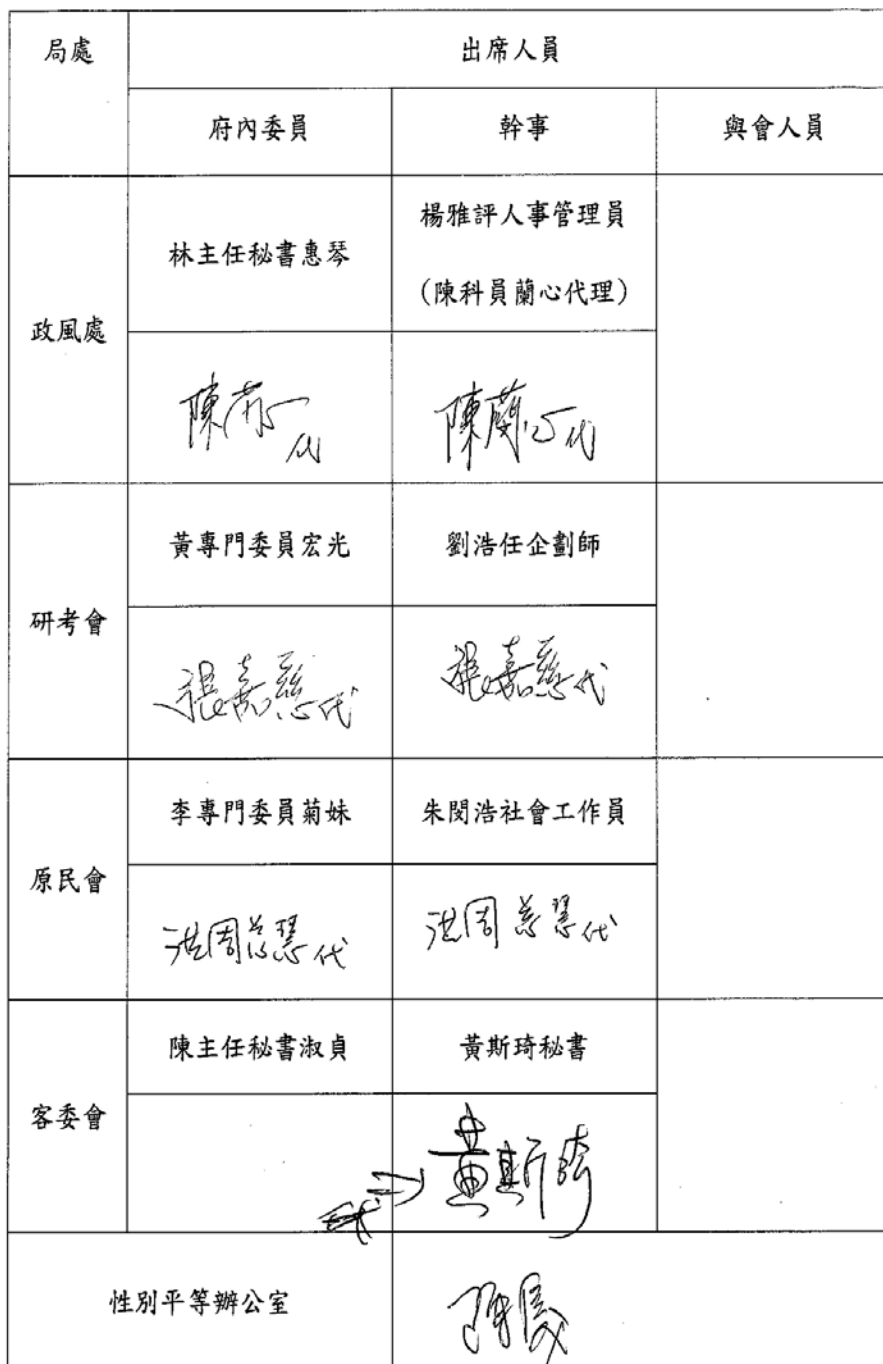 局處
出席人員
府內委員
幹事
與會人員
政風處
林主任秘書惠琴
楊雅評人事管理員
(陳科員蘭心代理)
陳 代
陳蘭心代
研考會
黃專門委員宏光
劉浩任企劃師
張嘉慈代
張嘉慈代
原民會
李專門委員菊妹
朱閔浩社會工作員
洪周慈慧代
洪周慈慧代
客委會
陳主任秘書淑貞
黃斯琦秘書
黃斯琦
代
性別平等辦公室